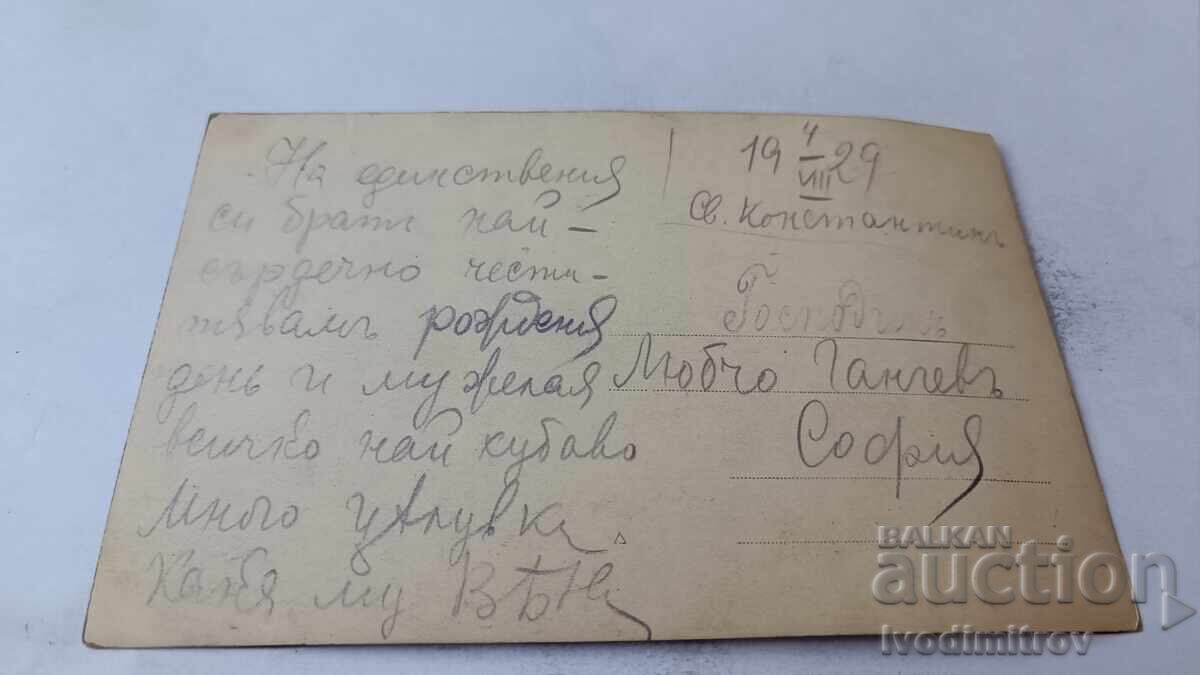 На единствения
си братъ най-
сърдечно чести-
тявамъ рождения
день и му желая
всичко най хубаво
Много цѣлувки
му ВѢНи
19 4/VIII 29
Св. Константинъ
Господинъ
Любчо Ганчевъ
София
BALKAN
auction
Ivodimitrov